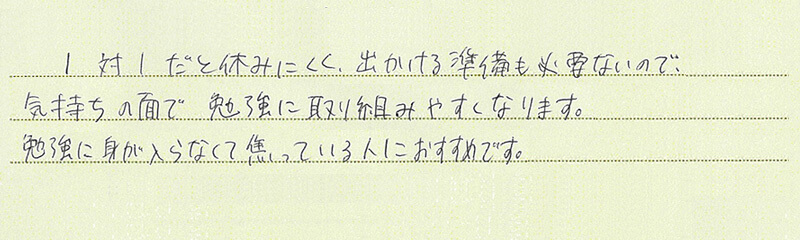 1対1だと休みにくく、出かける準備も必要ないので、
気持ちの面で勉強に取り組みやすくなります。
勉強に身が入らなくて焦っている人におすすめです。